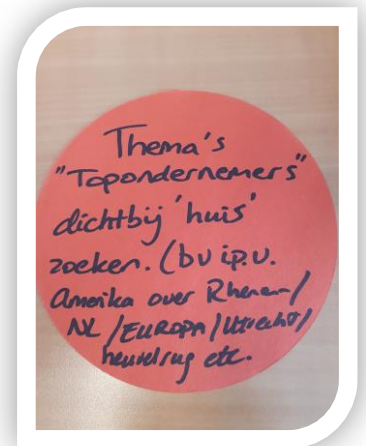 Thema's
"Topondernemers"
dichtbij 'huis'
zoeken. (bv i.p.v.
Amerika over Rhenen/
NL/EUROPA/Utrecht/
heuvelrug etc.